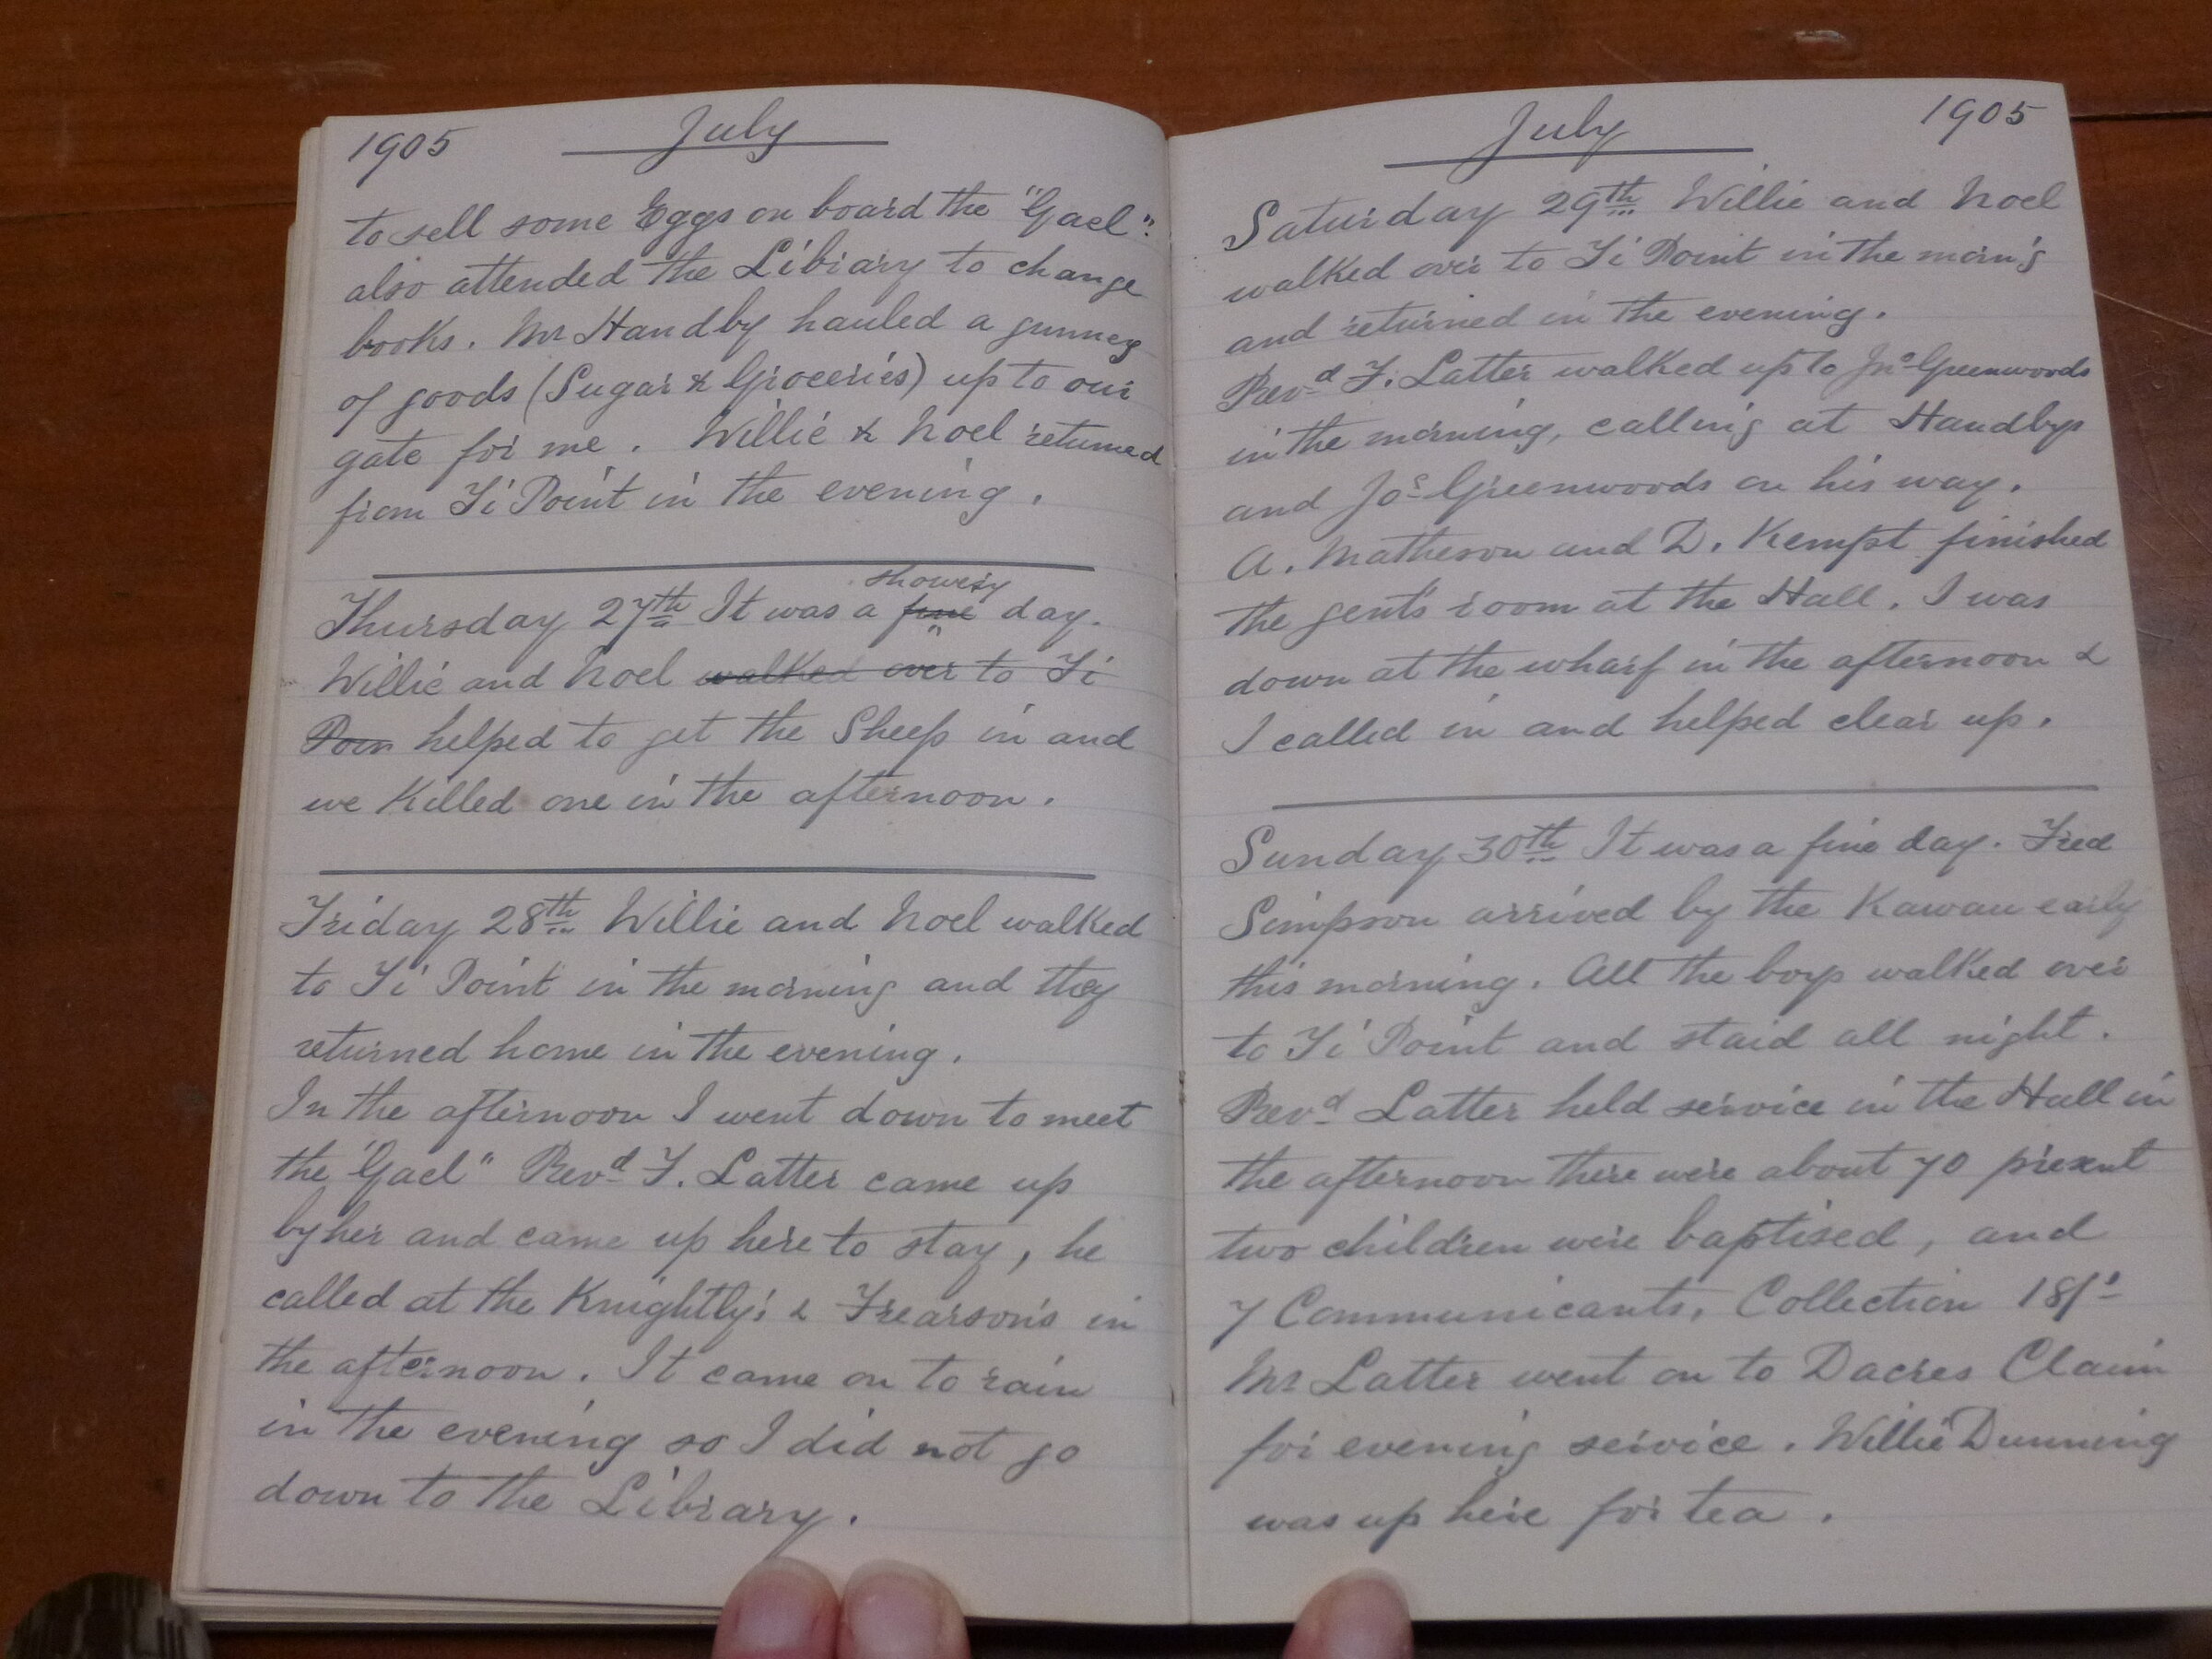 1905 July
to sell some Eggs on board the "Gael".
also attended the Library to change
books. Mr Handby hauled a gunney
of goods (Sugar & Groceries) up to our
gate for me. Willie & Noel returned
from Ti Point in the evening.
Thursday 27th It was a fine showery day.
Willie and Noel walked over to Ti
Poin helped to get the Sheep in and
we Killed one in the afternoon.
Friday 28th Willie and Noel walked
to Ti Point in the morning and they
returned home in the evening.
In the afternoon I went down to meet
the "Gael" Revd F. Latter came up
by her and came up here to stay, he
called at the Knightly's & Frearson's in
the afternoon. It came on to rain
in the evening so I did not go
down to the Library.
July 1905
Saturday 29th Willie and Noel
walked over to Ti Point in the morn'g
and returned in the evening.
Revd F. Latter walked up to Jno Greenwoods
in the morning, calling at Handbys
and Jos Greenwoods on his way.
A. Matheson and D. Kempt finished
the gent's room at the Hall. I was
down at the wharf in the afternoon &
I called in and helped clear up.
Sunday 30th It was a fine day. Fred
Simpson arrived by the Kawau early
this morning. All the boys walked over
to Ti Point and staid all night.
Revd Latter held service in the Hall in
the afternoon there were about 70 present
two children were baptised, and
7 Communicants. Collection 18/s
Mr Latter went on to Dacres Claim
for evening service. Willie Dunning
was up here for tea.